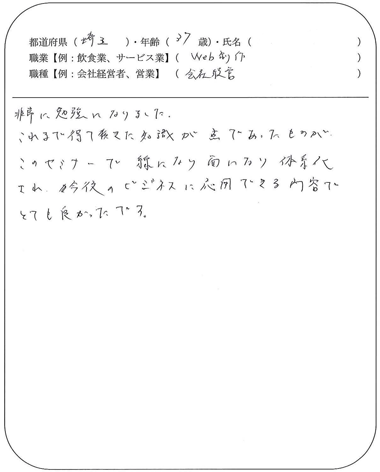 都道府県（埼玉）・年齢（37歳）・氏名（　　　）
職業【例：飲食業、サービス業】（Web制作）
職種【例：会社経営者、営業】（会社経営）
非常に勉強になりました。
これまで得て来た知識が点であったものが
このセミナーで線になり面になり体系化
され、今後のビジネスに応用できる内容で
とても良かったです。